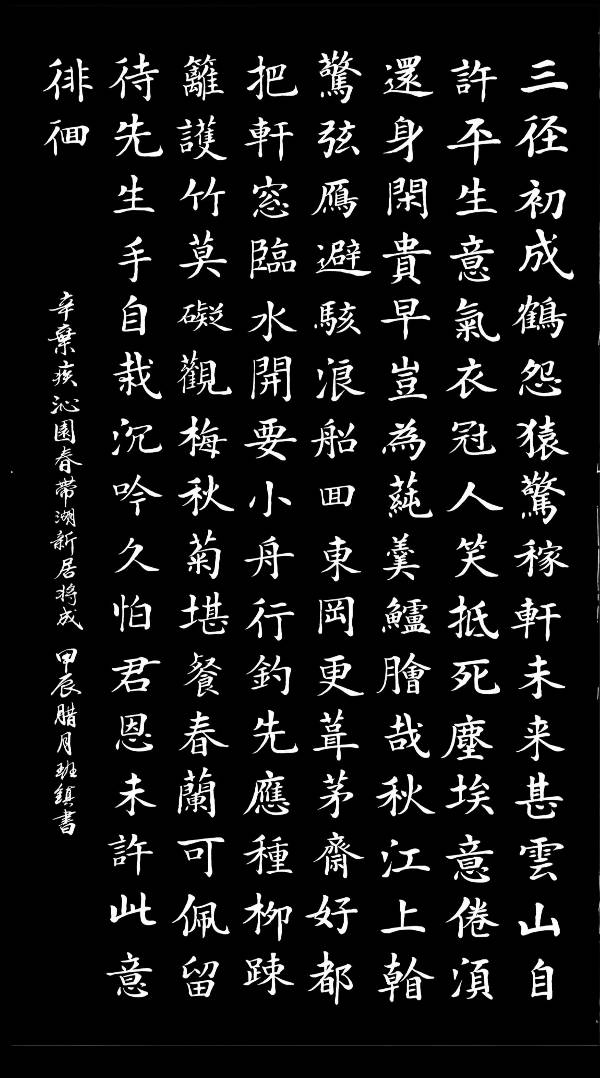 三径初成鶴怨猿驚稼軒未来甚雲山自
許平生意氣衣冠人笑抵死塵埃意倦須
還身閑貴早豈為蓴羹鱸膾哉秋江上看
驚弦鴈避駭浪船回東岡更葺茅齋好都
把軒窓臨水開要小舟行釣先應種柳疎
籬護竹莫礙觀梅秋菊堪餐春蘭可佩留
待先生手自栽沉吟久怕君恩未許此意
徘徊
辛棄疾沁園春帶湖新居將成 甲辰腊月班鎮書